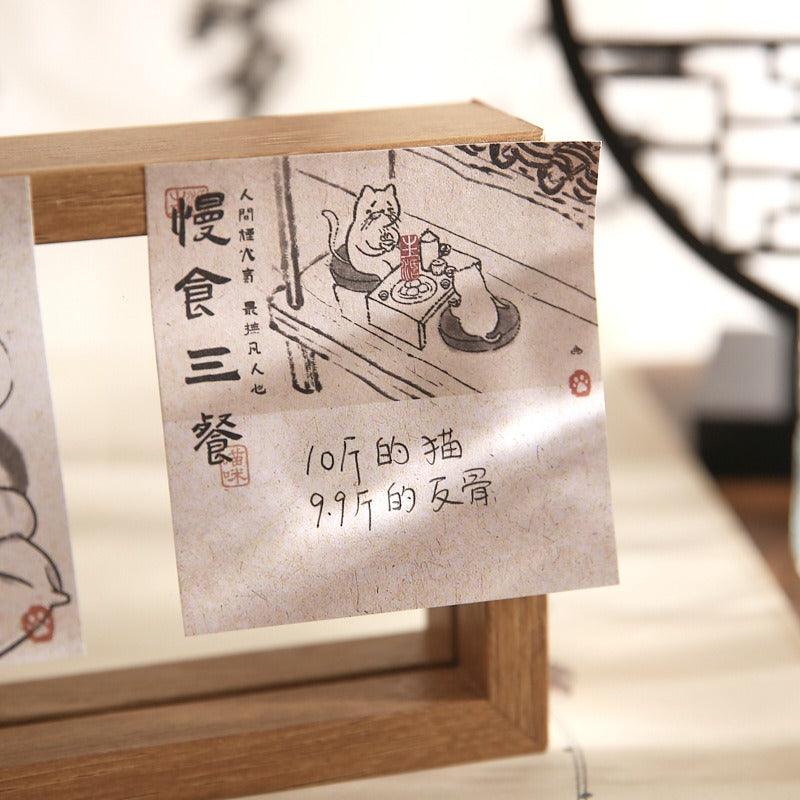 慢食三餐
人間煙火氣
最撫凡人心
生活
貓咪
10斤的猫
9.9斤的反骨